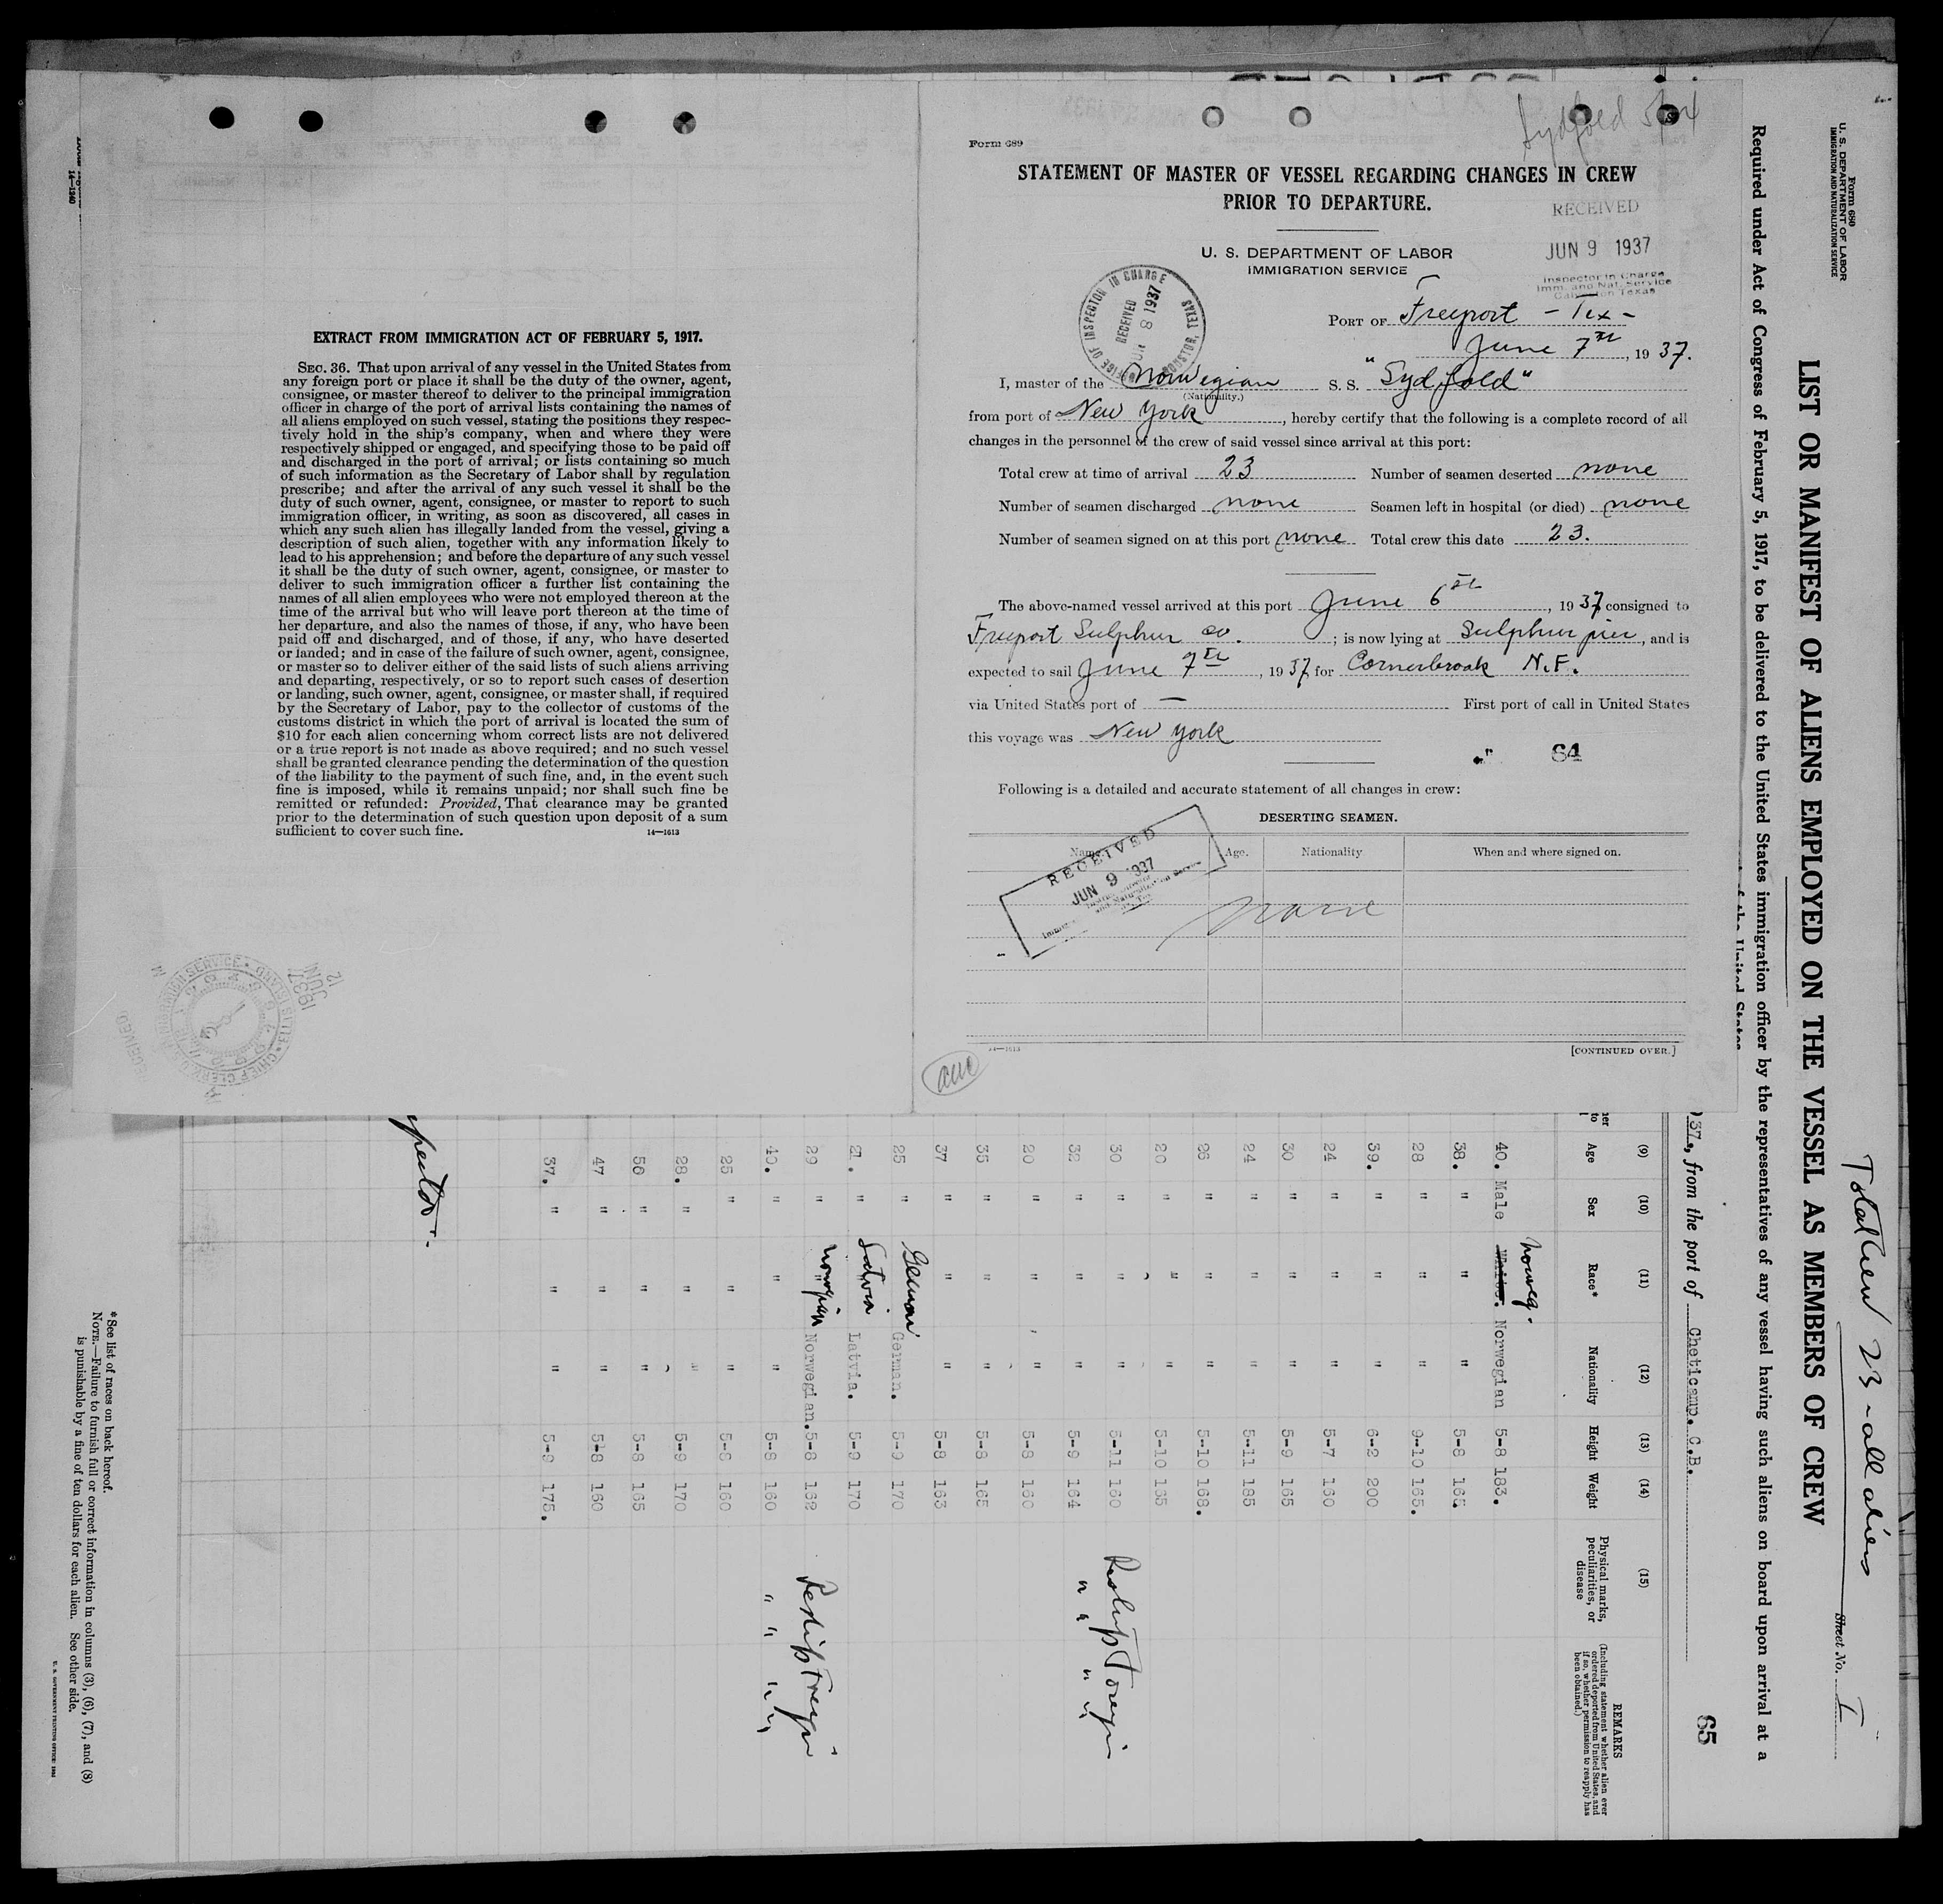 EXTRACT FROM IMMIGRATION ACT OF FEBRUARY 5, 1917.
SEC. 36. That upon arrival of any vessel in the United States from
any foreign port or place it shall be the duty of the owner, agent,
consignee, or master thereof to deliver to the principal immigration
officer in charge of the port of arrival lists containing the names of
all aliens employed on such vessel, stating the positions they respec-
tively hold in the ship's company, when and where they were
respectively shipped or engaged, and specifying those to be paid off
and discharged in the port of arrival; or lists containing so much
of such information as the Secretary of Labor shall by regulation
prescribe; and after the arrival of any such vessel it shall be the
duty of such owner, agent, consignee, or master to report to such
immigration officer, in writing, as soon as discovered, all cases in
which any such alien has illegally landed from the vessel, giving a
description of such alien, together with any information likely to
lead to his apprehension; and before the departure of any such vessel
it shall be the duty of such owner, agent, consignee, or master to
deliver to such immigration officer a further list containing the
names of all alien employees who were not employed thereon at the
time of the arrival but who will leave port thereon at the time of
her departure, and also the names of those, if any, who have been
paid off and discharged, and of those, if any, who have deserted
or landed; and in case of the failure of such owner, agent, consignee,
or master so to deliver either of the said lists of such aliens arriving
and departing, respectively, or so to report such cases of desertion
or landing, such owner, agent, consignee, or master shall, if required
by the Secretary of Labor, pay to the collector of customs of the
customs district in which the port of arrival is located the sum of
$10 for each alien concerning whom correct lists are not delivered
or a true report is not made as above required; and no such vessel
shall be granted clearance pending the determination of the question
of the liability to the payment of such fine, and, in the event such
fine is imposed, while it remains unpaid; nor shall such fine be
remitted or refunded: Provided, That clearance may be granted
prior to the determination of such question upon deposit of a sum
sufficient to cover such fine. 14—1613
14—1240
Sydfold 5/24
Form 689
STATEMENT OF MASTER OF VESSEL REGARDING CHANGES IN CREW
PRIOR TO DEPARTURE.
RECEIVED
JUN 9 1937
Inspector in Charge
Imm. and Nat. Service
Galveston Texas
U. S. DEPARTMENT OF LABOR
IMMIGRATION SERVICE
OFFICE OF INSPECTOR IN CHARGE HOUSTON TEXAS
RECEIVED
JUN 8 1937
PORT OF Freeport - Tex -
June 7th, 1937.
I, master of the Norwegian S. S. "Sydfold"
(Nationality.)
from port of New York, hereby certify that the following is a complete record of all
changes in the personnel of the crew of said vessel since arrival at this port:
Total crew at time of arrival 23 Number of seamen deserted none
Number of seamen discharged none Seamen left in hospital (or died) none
Number of seamen signed on at this port none Total crew this date 23.
The above-named vessel arrived at this port June 6th, 1937 consigned to
Freeport Sulphur co.; is now lying at Sulphur pier, and is
expected to sail June 7th, 1937 for Cornerbrook N.F.
via United States port of — First port of call in United States
this voyage was New York
64
Following is a detailed and accurate statement of all changes in crew:
DESERTING SEAMEN.
Name. Age. Nationality When and where signed on.
RECEIVED
JUN 9 1937
none
14—1613
[CONTINUED OVER.]
Form 680
U. S. DEPARTMENT OF LABOR
IMMIGRATION AND NATURALIZATION SERVICE
Total Crew 23 - all aliens
Sheet No. I
LIST OR MANIFEST OF ALIENS EMPLOYED ON THE VESSEL AS MEMBERS OF CREW
Required under Act of Congress of February 5, 1917, to be delivered to the United States immigration officer by the representatives of any vessel having such aliens on board upon arrival at a
of the United States
65
37., from the port of Cheticamp. C.B.
(9) (10) (11) (12) (13) (14) (15)
Age Sex Race* Nationality Height Weight Physical marks, peculiarities, or disease
REMARKS
(Including statement whether alien ever ordered deported from United States, and if so, whether permission to reapply has been obtained.)
Norweg.
40. Male White. Norwegian 5-8 183.
38. " " " 5-8 165
28 " " " 9-10 165.
39. " " " 6-2 200
24 " " " 5-7 130
30 " " " 5-9 165
24 " " " 5-11 185
26 " " " 5-10 168.
20 " " " 5-10 155
30 " " " 5-11 160
32 " " " 5-9 164 " " " "
20 " " " 5-8 160
35 " " " 5-8 165
37 " " " 5-8 163
25 " German German. 5-9 170
21. " Latvia Latvia. 5-9 170
29 " Norwegian Norwegian. 5-8 162
40. " " " 5-8 160 " " " "
25 " " " 5-8 160
28. " " " 5-9 170
56 " " " 5-8 165
47 " " " 5-8 160
37. " " " 5-9 175.
* See list of races on back hereof.
NOTE.—Failure to furnish full or correct information in columns (3), (6), (7), and (8)
is punishable by a fine of ten dollars for each alien. See other side.